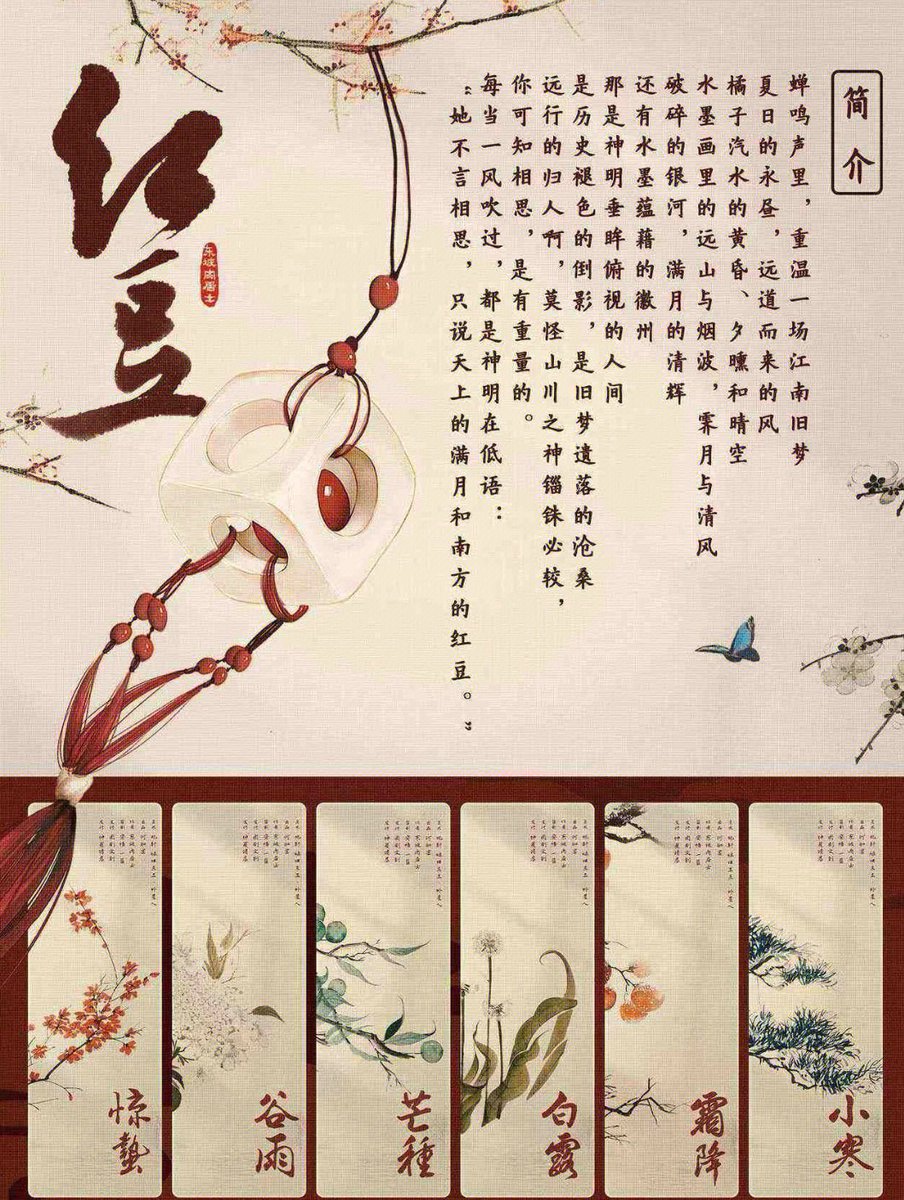 红豆
东坡肉居士
简介
蝉鸣声里，重温一场江南旧梦
夏日的永昼，远道而来的风
橘子汽水的黄昏、夕曛和晴空
水墨画里的远山与烟波，霁月与清风
破碎的银河，满月的清辉
还有水墨蕴藉的徽州
那是神明垂眸俯视的人间
是历史褪色的倒影，是旧梦遗落的沧桑
远行的归人啊，莫怪山川之神锱铢必较，
你可知相思，是有重量的。
每当一风吹过，都是神明在低语：
“她不言相思，只说天上的满月和南方的红豆。”
惊蟄
谷雨
芒種
白露
霜降
小寒